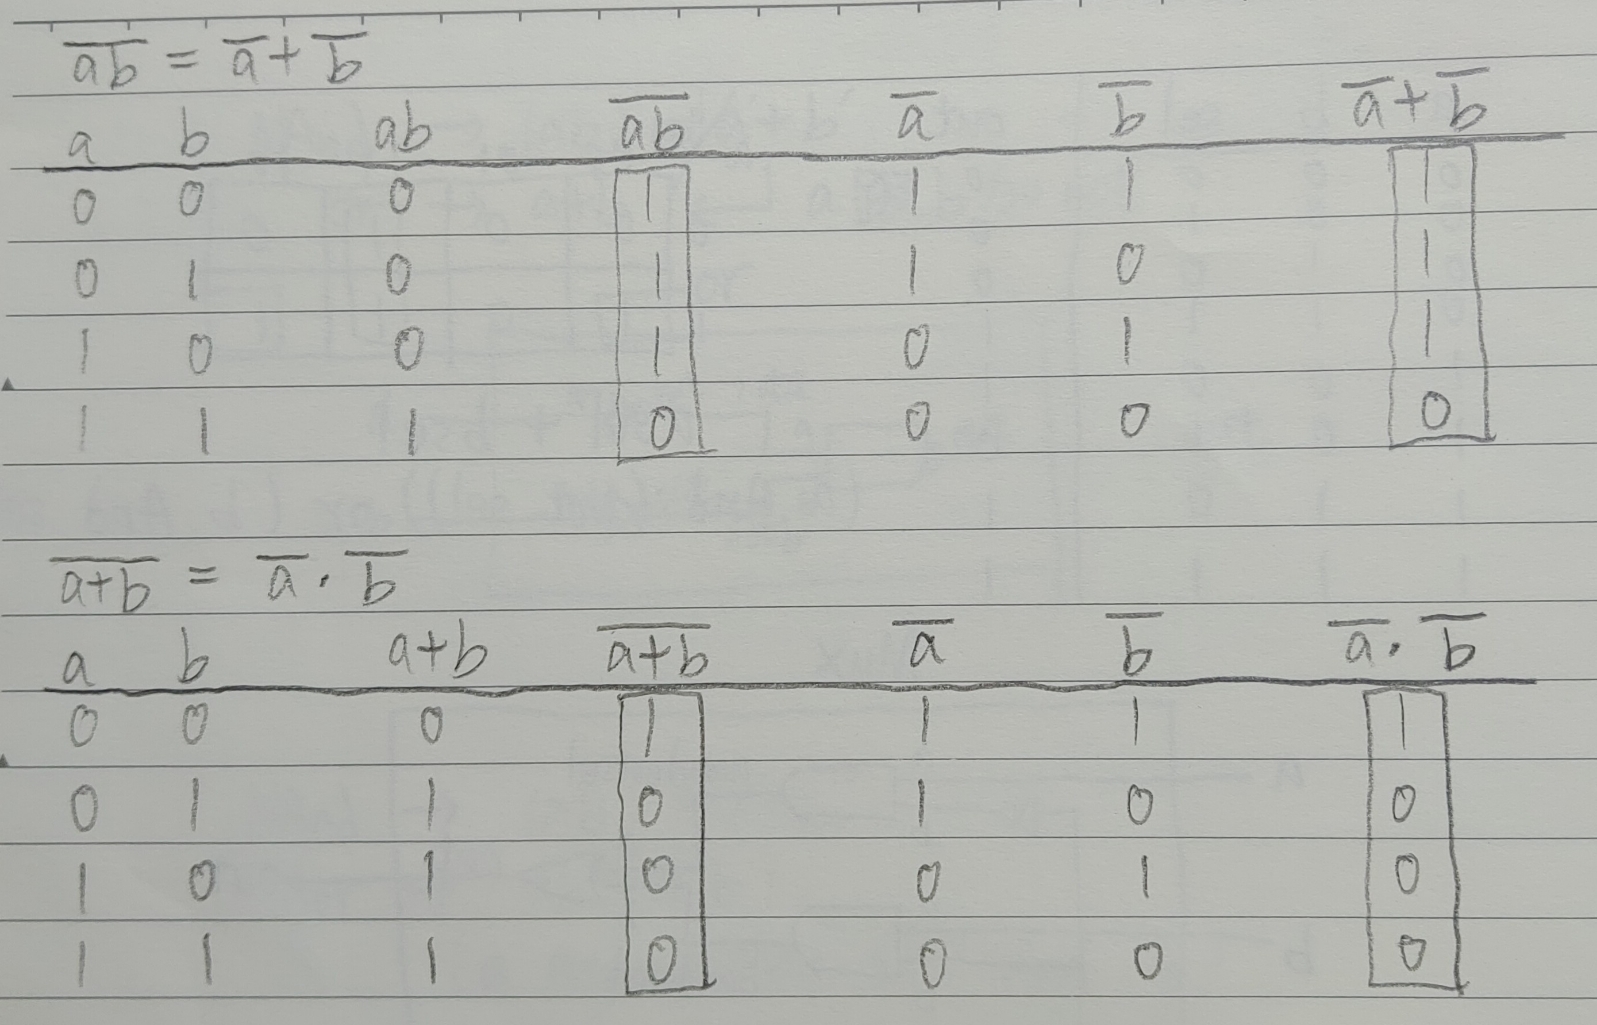 a̅b̅ = a̅ + b̅
a b ab a̅b̅ a̅ b̅ a̅ + b̅
0 0 0 1 1 1 1
0 1 0 1 1 0 1
1 0 0 1 0 1 1
1 1 1 0 0 0 0
a̅+̅b̅ = a̅ · b̅
a b a+b a̅+̅b̅ a̅ b̅ a̅ · b̅
0 0 0 1 1 1 1
0 1 1 0 1 0 0
1 0 1 0 0 1 0
1 1 1 0 0 0 0